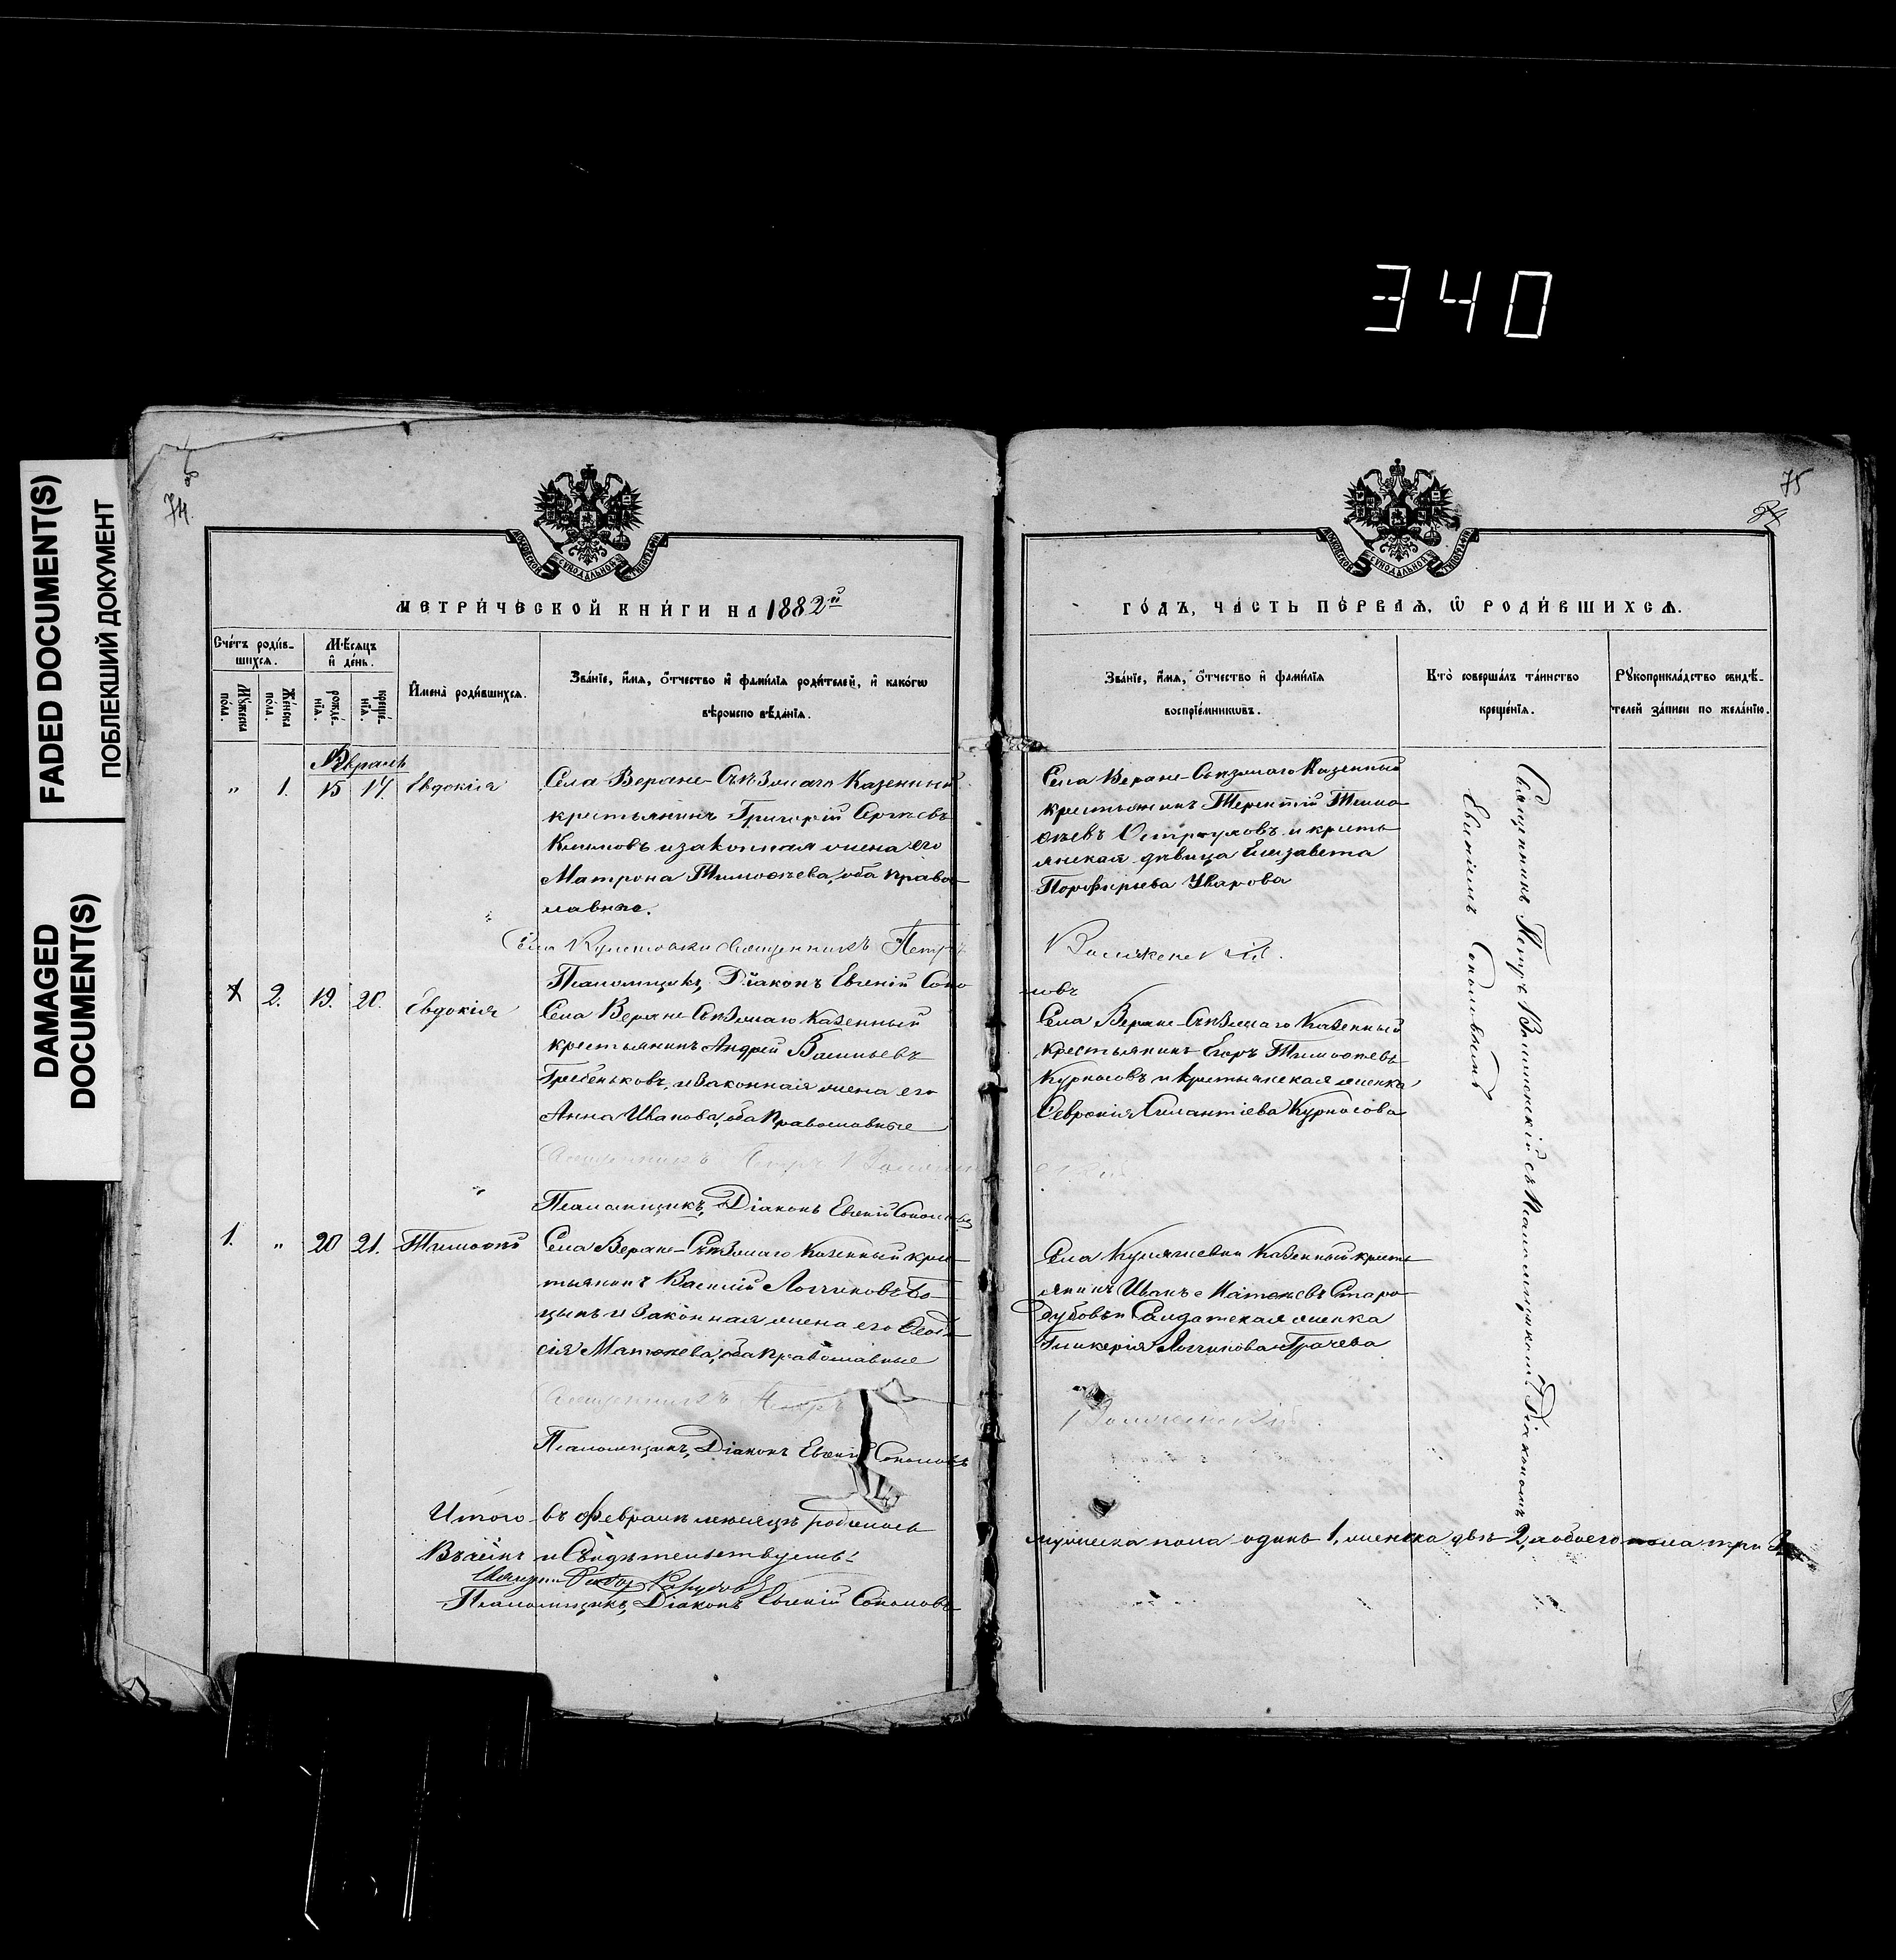 340
FADED DOCUMENT(S)
ПОБЛЕКШИЙ ДОКУМЕНТ
DAMAGED
DOCUMENT(S)
74.
МЕТРИ́ЧЕСКОЙ КНИ́ГИ НА 1882й
Сче́тъ роди́в-
шихся.
Мѣсяцъ
и҆ де́нь.
Мꙋжеска
по́ла.
Же́нска
по́ла.
рожде́-
нїѧ.
креще́-
нїѧ.
И҆мена̀ роди́вшихся.
Зва́нїе, и҆́мя, ѻ҆́тчество и҆ фами́лїя роди́телей, и҆ како́гѡ
вѣроисповѣ́данїя.
Февраль
" 1. 15 17. Евдокія
Села Верхне-Съѣзжаго Казенный
крестьянинъ Григорій Сергѣевъ
Климовъ и законная жена его
Матрона Тимофѣева, оба право-
славные.
священникъ Петръ
Псаломщикъ, Діаконъ Евгеній Соко
2. 19. 20. Евдокія
Села Верхне-Съѣзжаго Казенный
крестьянинъ Андрей Васильевъ
Гребеньковъ, и законная жена его
Анна Иванова, оба православные
Священникъ Петръ
Псаломщикъ, Діаконъ Евгеній Соколовъ
1. " 20 21. Тимофей
Села Верхне-Съѣзжаго Казенный крес-
тьянинъ Василій Логиновъ
и законная жена его
Матфѣева, оба православные
Священникъ Петръ
Псаломщикъ, Діаконъ Евгеній Соколовъ
Итого въ Февралѣ мѣсяцѣ родилось
и Свидѣтельствуемъ:
Псаломщикъ, Діаконъ Евгеній Соколовъ
75
ГО́ДЪ, ЧА́СТЬ ПЕ́РВАЯ, Ѡ҆ РОДИ́ВШИХСЯ.
Зва́нїе, и҆́мя, ѻ҆́тчество и҆ фами́лїя
воспрїе́мникѡвъ.
Кто̀ соверша́лъ та́инство
креще́нїя.
Рꙋкоприкла́дство свидѣ́-
телей за́писи по жела́нїю.
Села Верхне-Съѣзжаго Казенный
крестьянинъ Терентій Тимо-
фѣевъ и кресть-
янская дѣвица Елизавета
Порфирьева Уварова
ловъ
Села Верхне-Съѣзжаго Казенный
крестьянинъ Егоръ Тимофѣевъ
Курносовъ и крестьянская женка
Силантіева Курносова
Села Казенный кресть-
янинъ Иванъ Матфѣевъ Старо-
дубовъ и Солдатская женка
Гликерія Логинова Грачева
Священникъ Петръ съ Псаломщикомъ Діакономъ
Евгеніемъ Соколовымъ
мужеска пола одинъ 1, женска двѣ 2, а обоего пола три 3